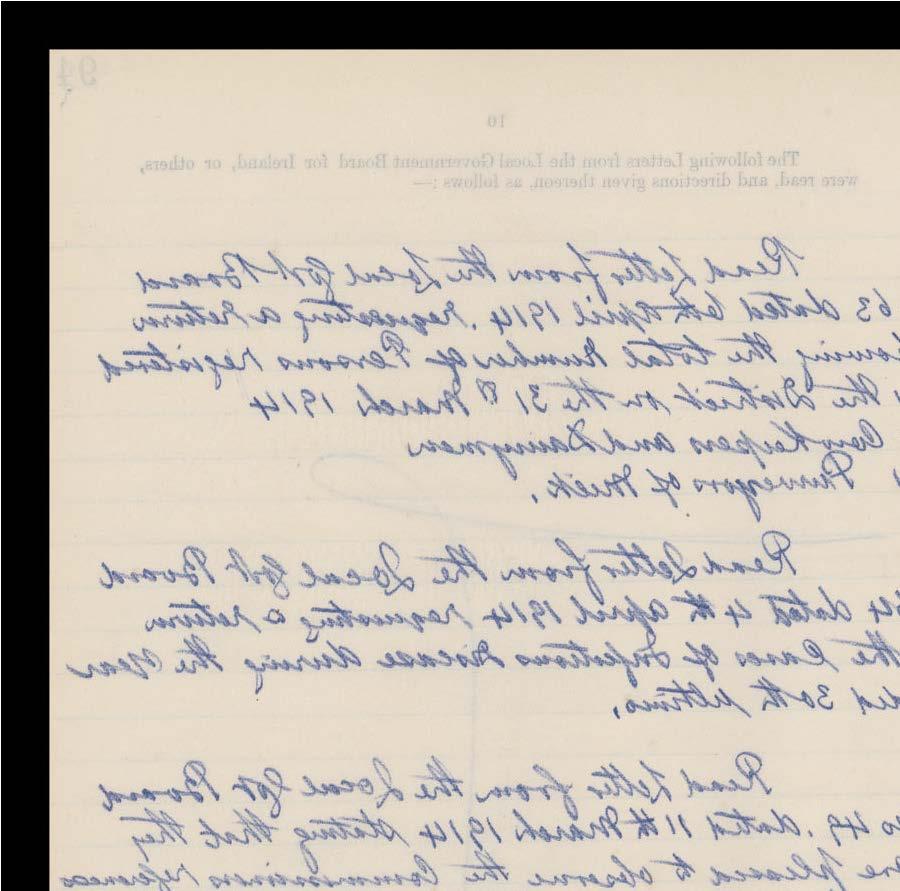 94
10
The following Letters from the Local Government Board for Ireland, or others,
were read, and directions given thereon, as follows :—
Read Letter from the Local Govt Board
63 dated 6th April 1914. requesting a return
owing the total number of Persons registered
the District on the 31st March 1914
Cow Keepers and Dairymen
Purveyors of Milk.
Read Letter from the Local Govt Board
14 dated 4th April 1914 requesting a return
the Cases of Infectious Disease during the Year
ed 30th Ultimo.
Read Letter from the Local Govt Board
No 49. dated 11th March 1914 stating that they
are pleased to observe the Commissioners